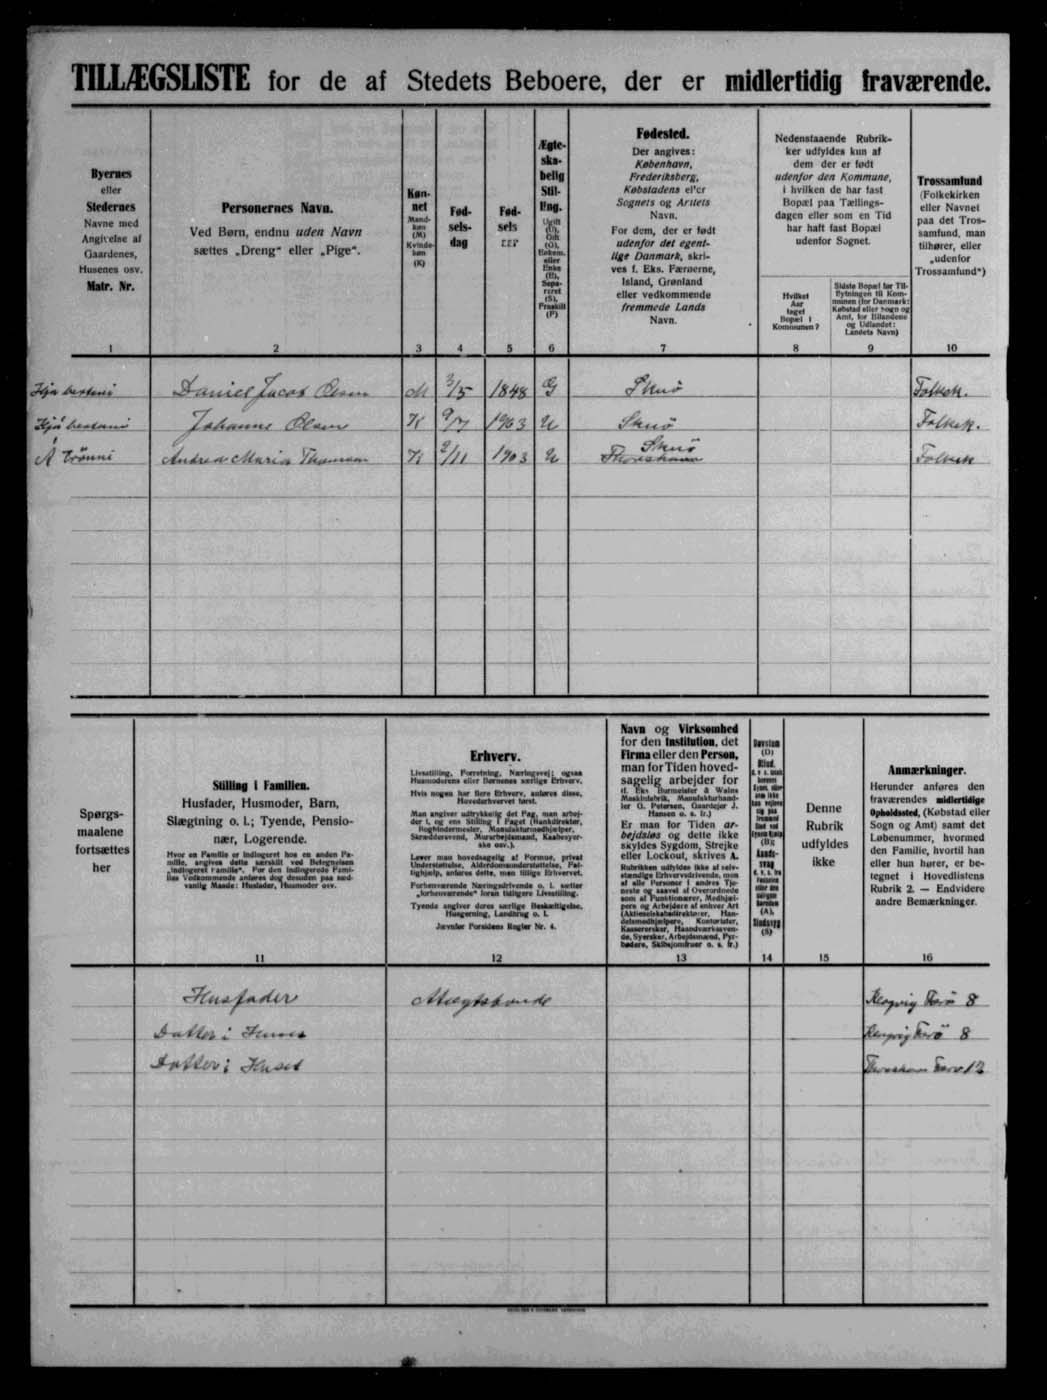 TILLÆGSLISTE for de af Stedets Beboere, der er midlertidig fraværende.
Byernes
eller
Stedernes
Navne med
Angivelse af
Gaardenes,
Husenes osv.
Matr. Nr.
Personernes Navn.
Ved Børn, endnu uden Navn
sættes „Dreng“ eller „Pige“.
Køn-
net
Mand-
køn
(M)
Kvinde-
køn
(K)
Fød-
sels-
dag
Fød-
sels
Ægte-
ska-
belig
Stil-
ling.
Ugift
(U),
Gift
(G),
Enkem.
eller
Enke
(E),
Sepa-
reret
(S),
Fraskilt
(F)
Fødested.
Der angives:
København,
Frederiksberg,
Købstadens eller
Sognets og Amtets
Navn.
For dem, der er født
udenfor det egent-
lige Danmark, skri-
ves f. Eks. Færøerne,
Island, Grønland
eller vedkommende
fremmede Lands
Navn.
Nedenstaaende Rubrik-
ker udfyldes kun af
dem der er født
udenfor den Kommune,
i hvilken de har fast
Bopæl paa Tællings-
dagen eller som en Tid
har haft fast Bopæl
udenfor Sognet.
Hvilket
Aar
taget
Bopæl i
Kommunen?
Sidste Bopæl før Til-
flytningen til Kom-
munen (for Danmark:
Købstad eller Sogn og
Amt, for Bilandene
og Udlandet:
Landets Navn)
Trossamfund
(Folkekirken
eller Navnet
paa det Tros-
samfund, man
tilhører, eller
„udenfor
Trossamfund“)
1 2 3 4 5 6 7 8 9 10
Daniel Jacob Olsen M 3/5 1848 G Skuö Folkek.
Johanne Olsen K 9/7 1903 U Skuö Folkek.
Skuö
Andrea Maria Thomsen K 2/11 1903 U Folkek
Spørgs-
maalene
fortsættes
her
Stilling i Familien.
Husfader, Husmoder, Barn,
Slægtning o. l.; Tyende, Pensio-
nær, Logerende.
Hvor en Familie er indlogeret hos en anden Fa-
milie, angives dette særskilt ved Betegnelsen
„indlogeret Familie“. For den indlogerede Fami-
lies Vedkommende anføres dog desuden paa sæd-
vanlig Maade: Husfader, Husmoder osv.
Erhverv.
Livsstilling, Forretning, Næringsvej; ogsaa
Husmoderens eller Børnenes særlige Erhverv.
Hvis nogen har flere Erhverv, anføres disse,
Hovederhvervet først.
Man angiver udtrykkelig det Fag, man arbej-
der i, og ens Stilling i Faget (Bankdirektør,
Bogbindermester, Manufakturmedhjælper,
Skræddersvend, Murarbejdsmand, Kaabesyer-
ske osv.).
Lever man hovedsagelig af Formue, privat
Understøttelse, Alderdomsunderstøttelse, Fat-
tighjælp, anføres dette, men tillige Erhvervet.
Forhenværende Næringsdrivende o. l. sætter
„forhenværende“ foran tidligere Livsstilling.
Tyende angiver deres særlige Beskæftigelse,
Husgerning, Landbrug o. l.
Jævnfør Forsidens Regler Nr. 4.
Navn og Virksomhed
for den Institution, det
Firma eller den Person,
man for Tiden hoved-
sagelig arbejder for
(f. Eks. Burmeister & Wains
Maskinfabrik, Manufakturhand-
ler G. Petersen, Gaardejer J.
Hansen o. s. fr.)
Er man for Tiden ar-
bejdsløs og dette ikke
skyldes Sygdom, Strejke
eller Lockout, skrives A.
Rubrikken udfyldes ikke af selv-
stændige Erhvervsdrivende, men
af alle Personer i andres Tje-
neste og saavel af Overordnede
som af Funktionærer, Medhjæl-
pere og Arbejdere af enhver Art
(Aktieselskabsdirektører, Han-
delsmedhjælpere, Kontorister,
Kassererskør, Haandværkssven-
de, Syersker, Arbejdsmænd, Fyr-
bødere, Skibsjomfruer o. s. fr.)
Døvstum
(D)
Blind,
(B);
Aands-
svag
(A),
Sindssyg
(S)
Denne
Rubrik
udfyldes
ikke
Anmærkninger.
Herunder anføres den
fraværendes midlertidige
Opholdssted, (Købstad eller
Sogn og Amt) samt det
Løbenummer, hvormed
den Familie, hvortil han
eller hun hører, er be-
tegnet i Hovedlistens
Rubrik 2. — Endvidere
andre Bemærkninger.
11 12 13 14 15 16
Husfader 8
Datter i Huset 8
Datter i Huset 12